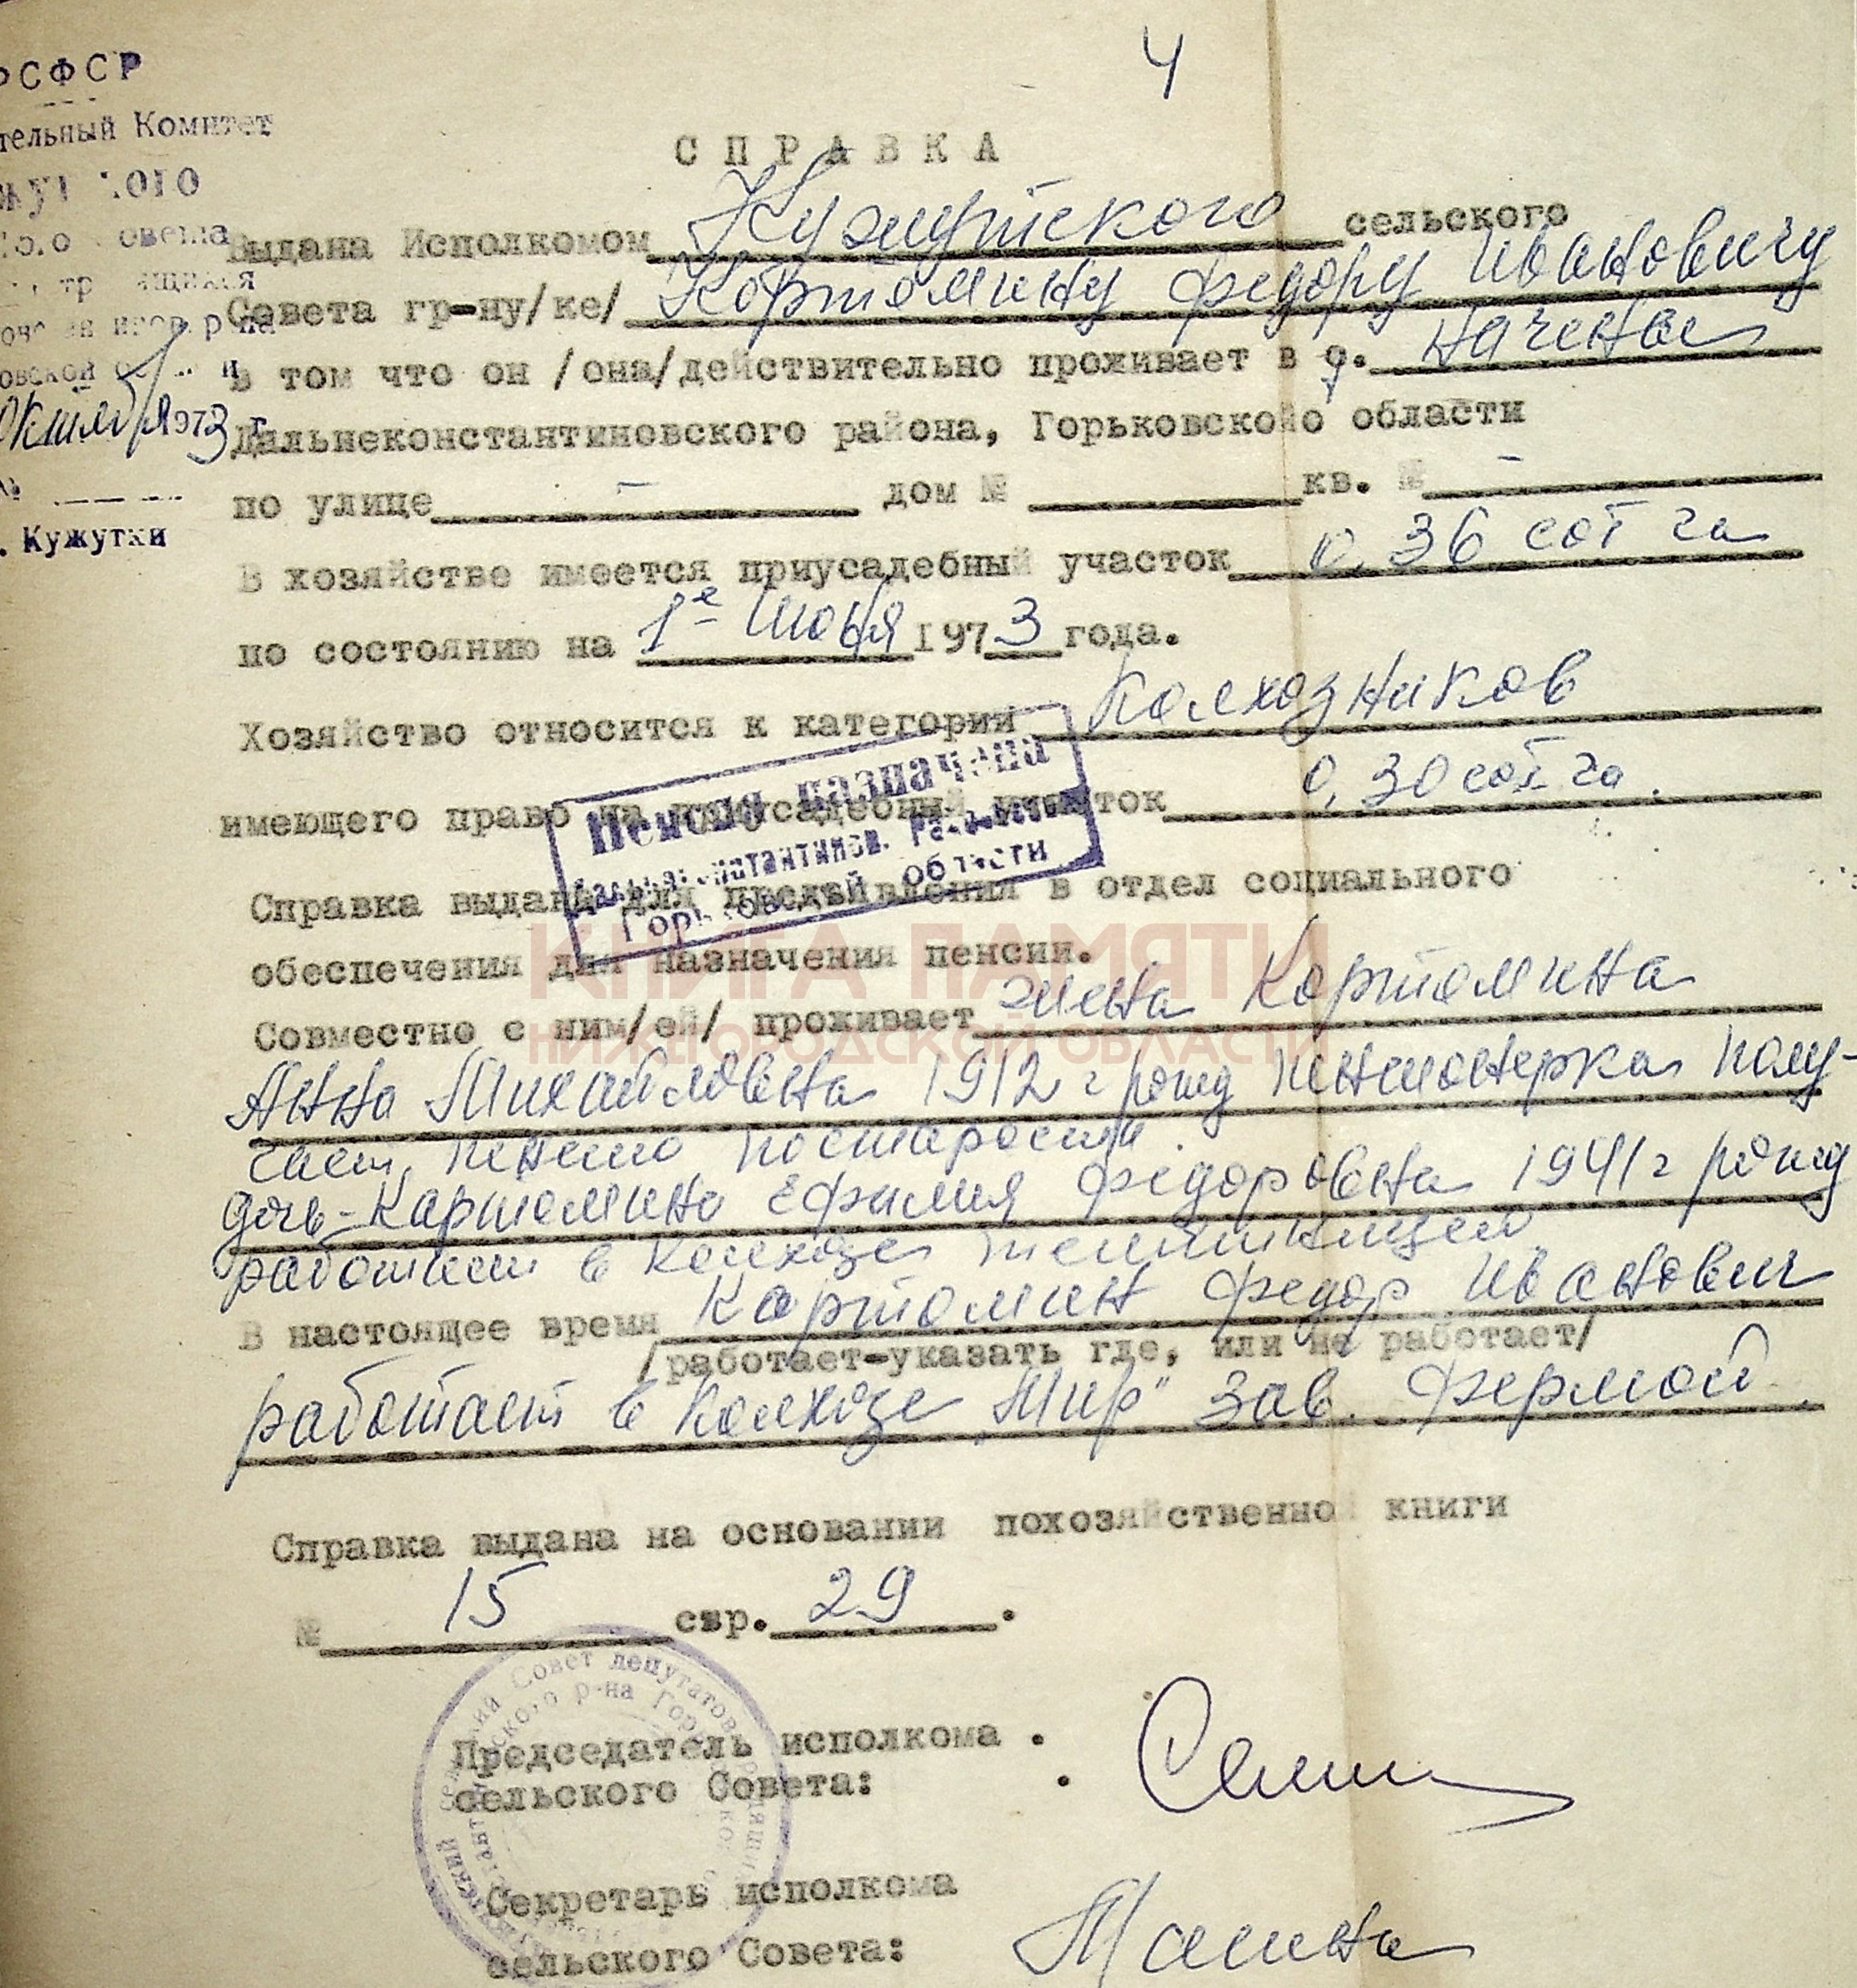 4
РСФСР
тельный Комитет
СПРАВКА
Выдана Исполкомом Кужутского сельского
Совета гр-ну/ке/ Картомину Федору Ивановичу
в том что он /она/действительно проживает в д.
Дальнеконстантиновского района, Горьковской области
октября 1973 г
по улице - дом № кв. № -
. Кужутки
В хозяйстве имеется приусадебный участок 0,36 сот га
по состоянию на 1е июня 1973 года.
Хозяйство относится к категории Колхозников
имеющего право на приусадебный участок 0,30 сот га.
Пенсия назначена
Горьковской области
Справка выдана для предъявления в отдел социального
обеспечения для назначения пенсии.
КНИГА ПАМЯТИ
НИЖЕГОРОДСКОЙ ОБЛАСТИ
Совместно с ним/ей/ проживает жена Картомина
Анна Михайловна 1912 г рожд пенсионерка полу-
чает пенсию по старости.
дочь-Картомина Ефимия Федоровна 1941г рожд
работает в колхозе
В настоящее время Картомин Федор Иванович
/работает-указать где, или не работает/
работает в колхозе „Мир" зав. фермой.
Справка выдана на основании похозяйственной книги
№ 15 стр. 29.
Председатель исполкома
сельского Совета:
Секретарь исполкома
сельского Совета:
сельский Совет депутатов трудящихся